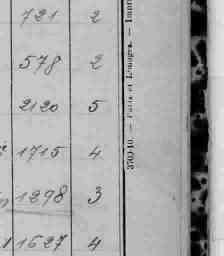 721 2
578 2
2120 5
1715 4
1298 3
1627 4
3709-10. — Paris et Limoges. — Impr